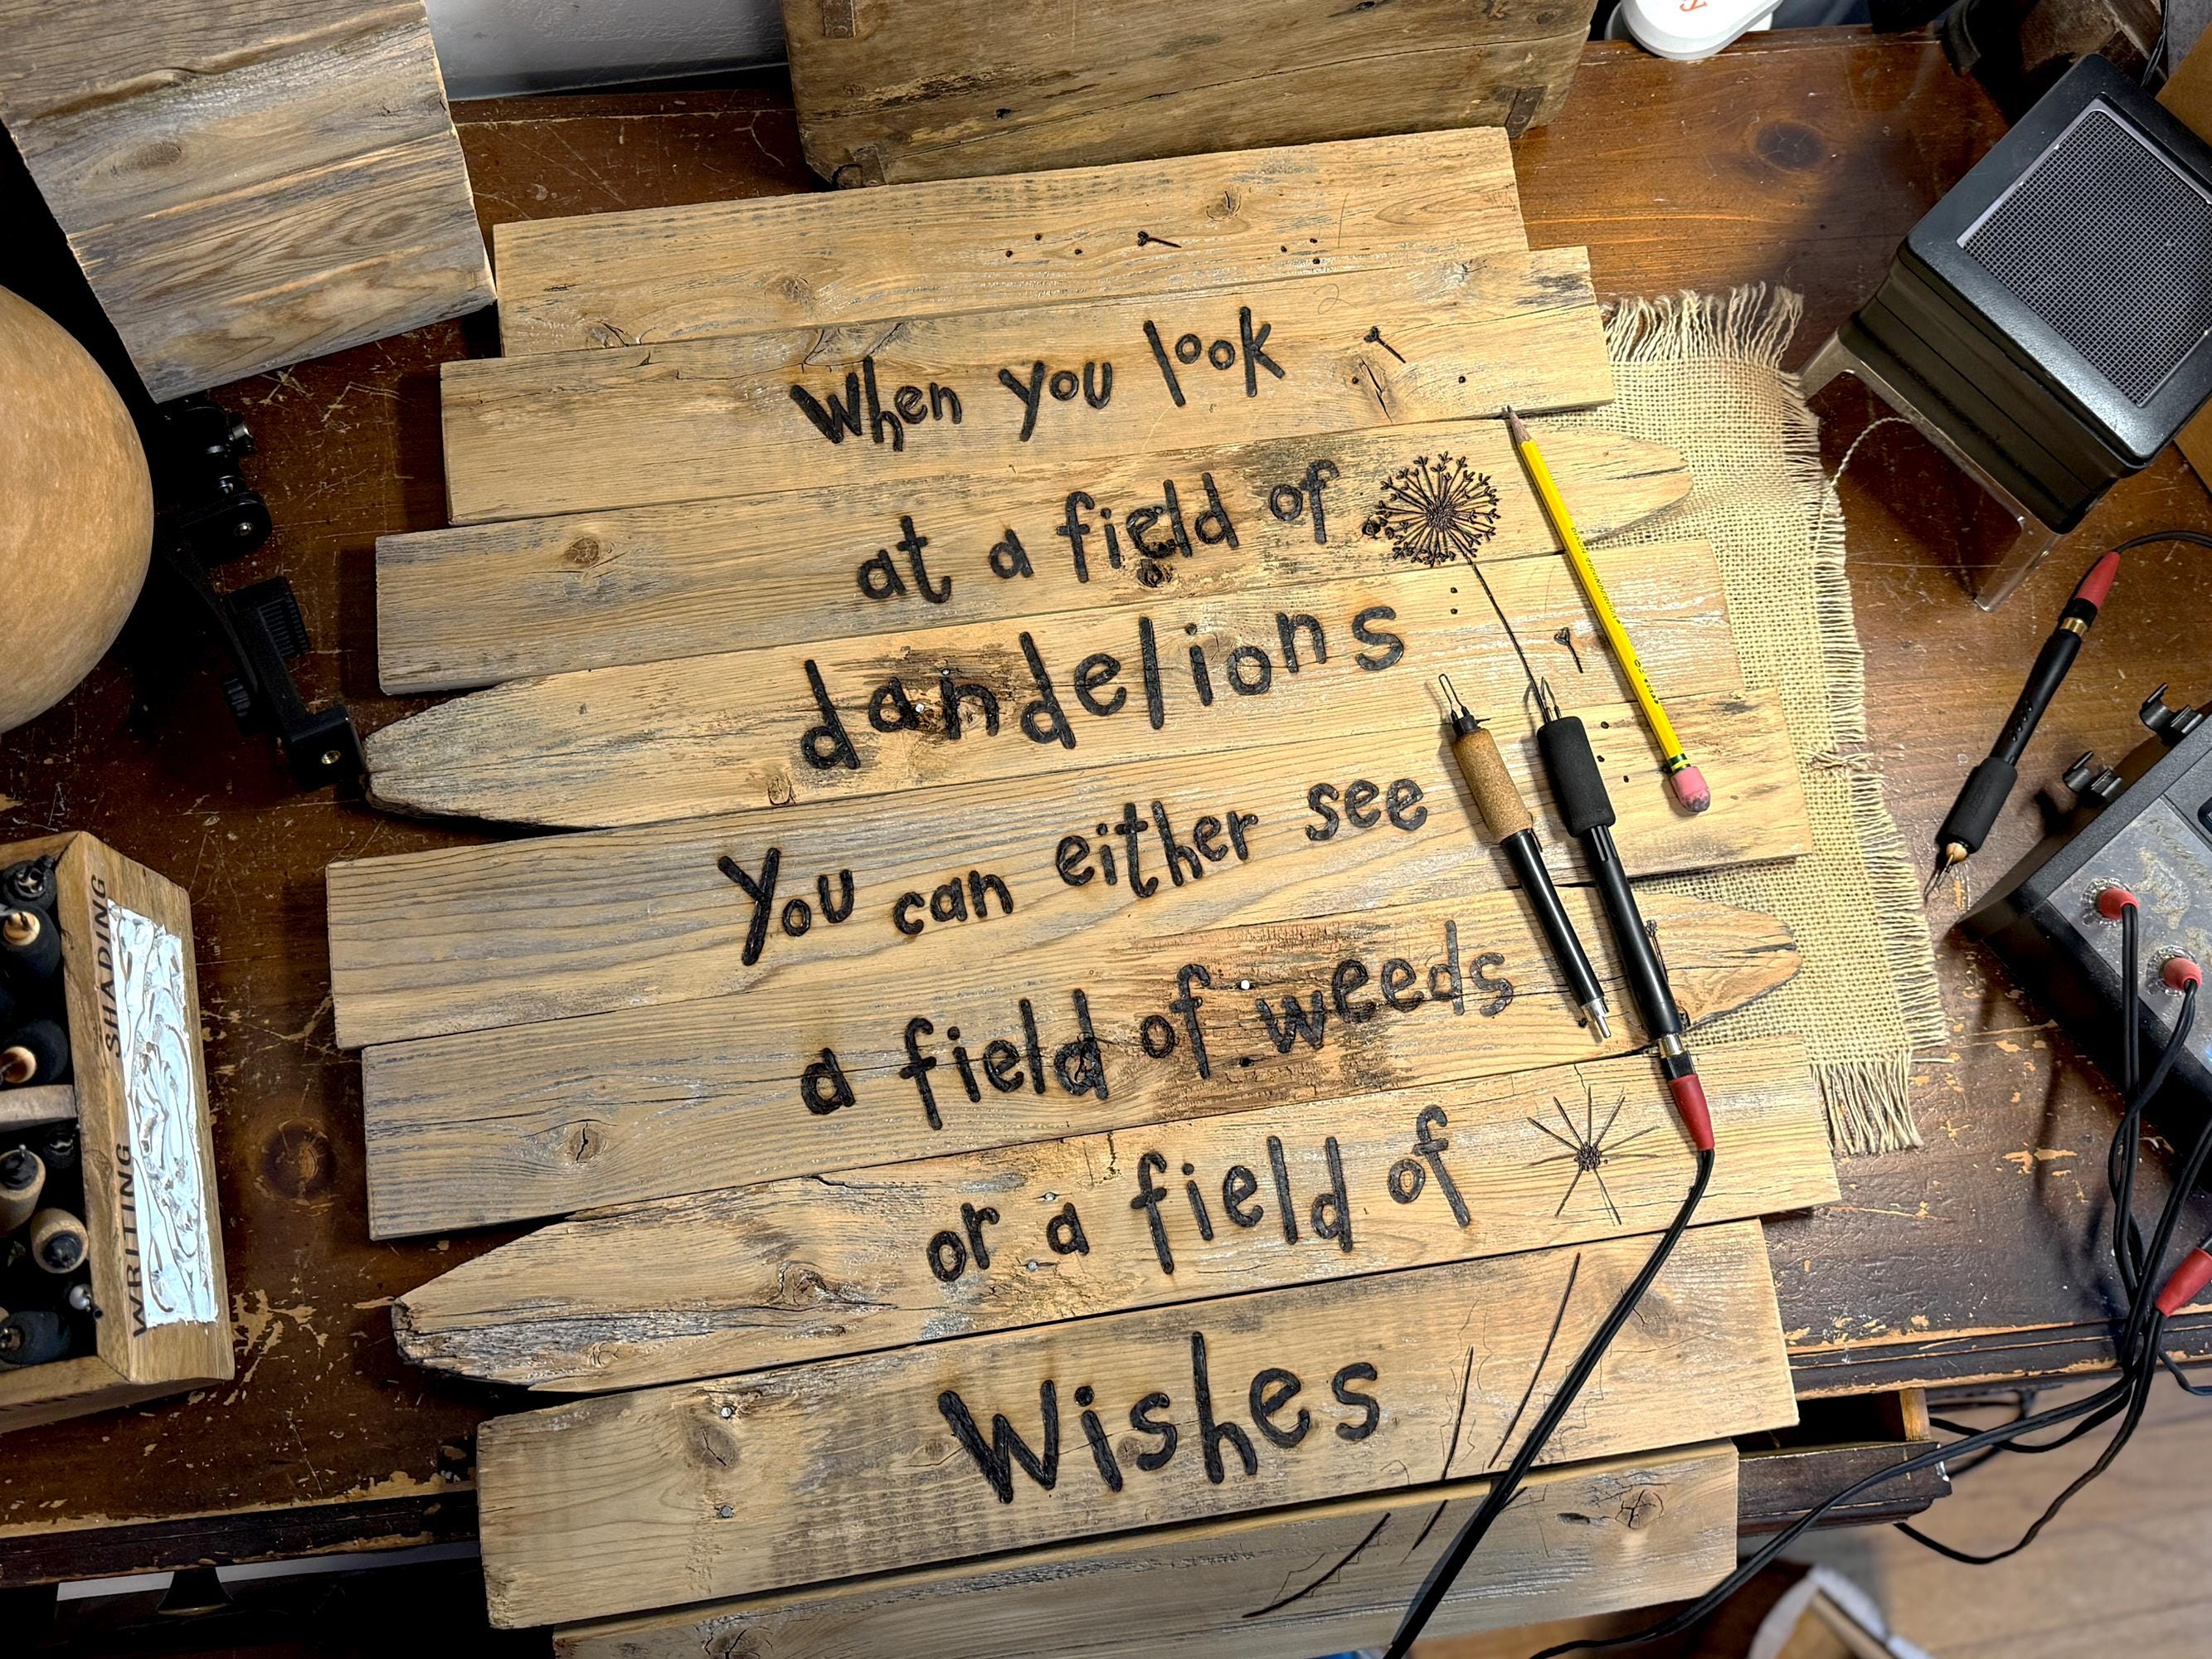 When you look
at a field of
dandelions
You can either see
a field of weeds
or a field of
Wishes
SHADING
WRITING